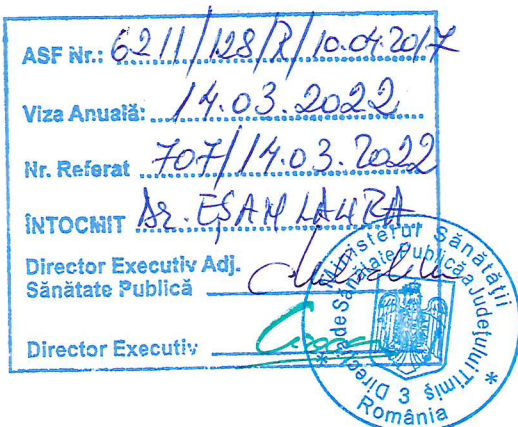 ASF Nr.: 6211/128/R/10.04.2017
Viza Anuală: 14.03.2022
Nr. Referat 707/14.03.2022
ÎNTOCMIT Dr. EȘAN LAURA
Director Executiv Adj.
Sănătate Publică
Director Executiv
Ministerul Sănătății
Direcția de Sănătate Publică a Județului Timiș
3
România